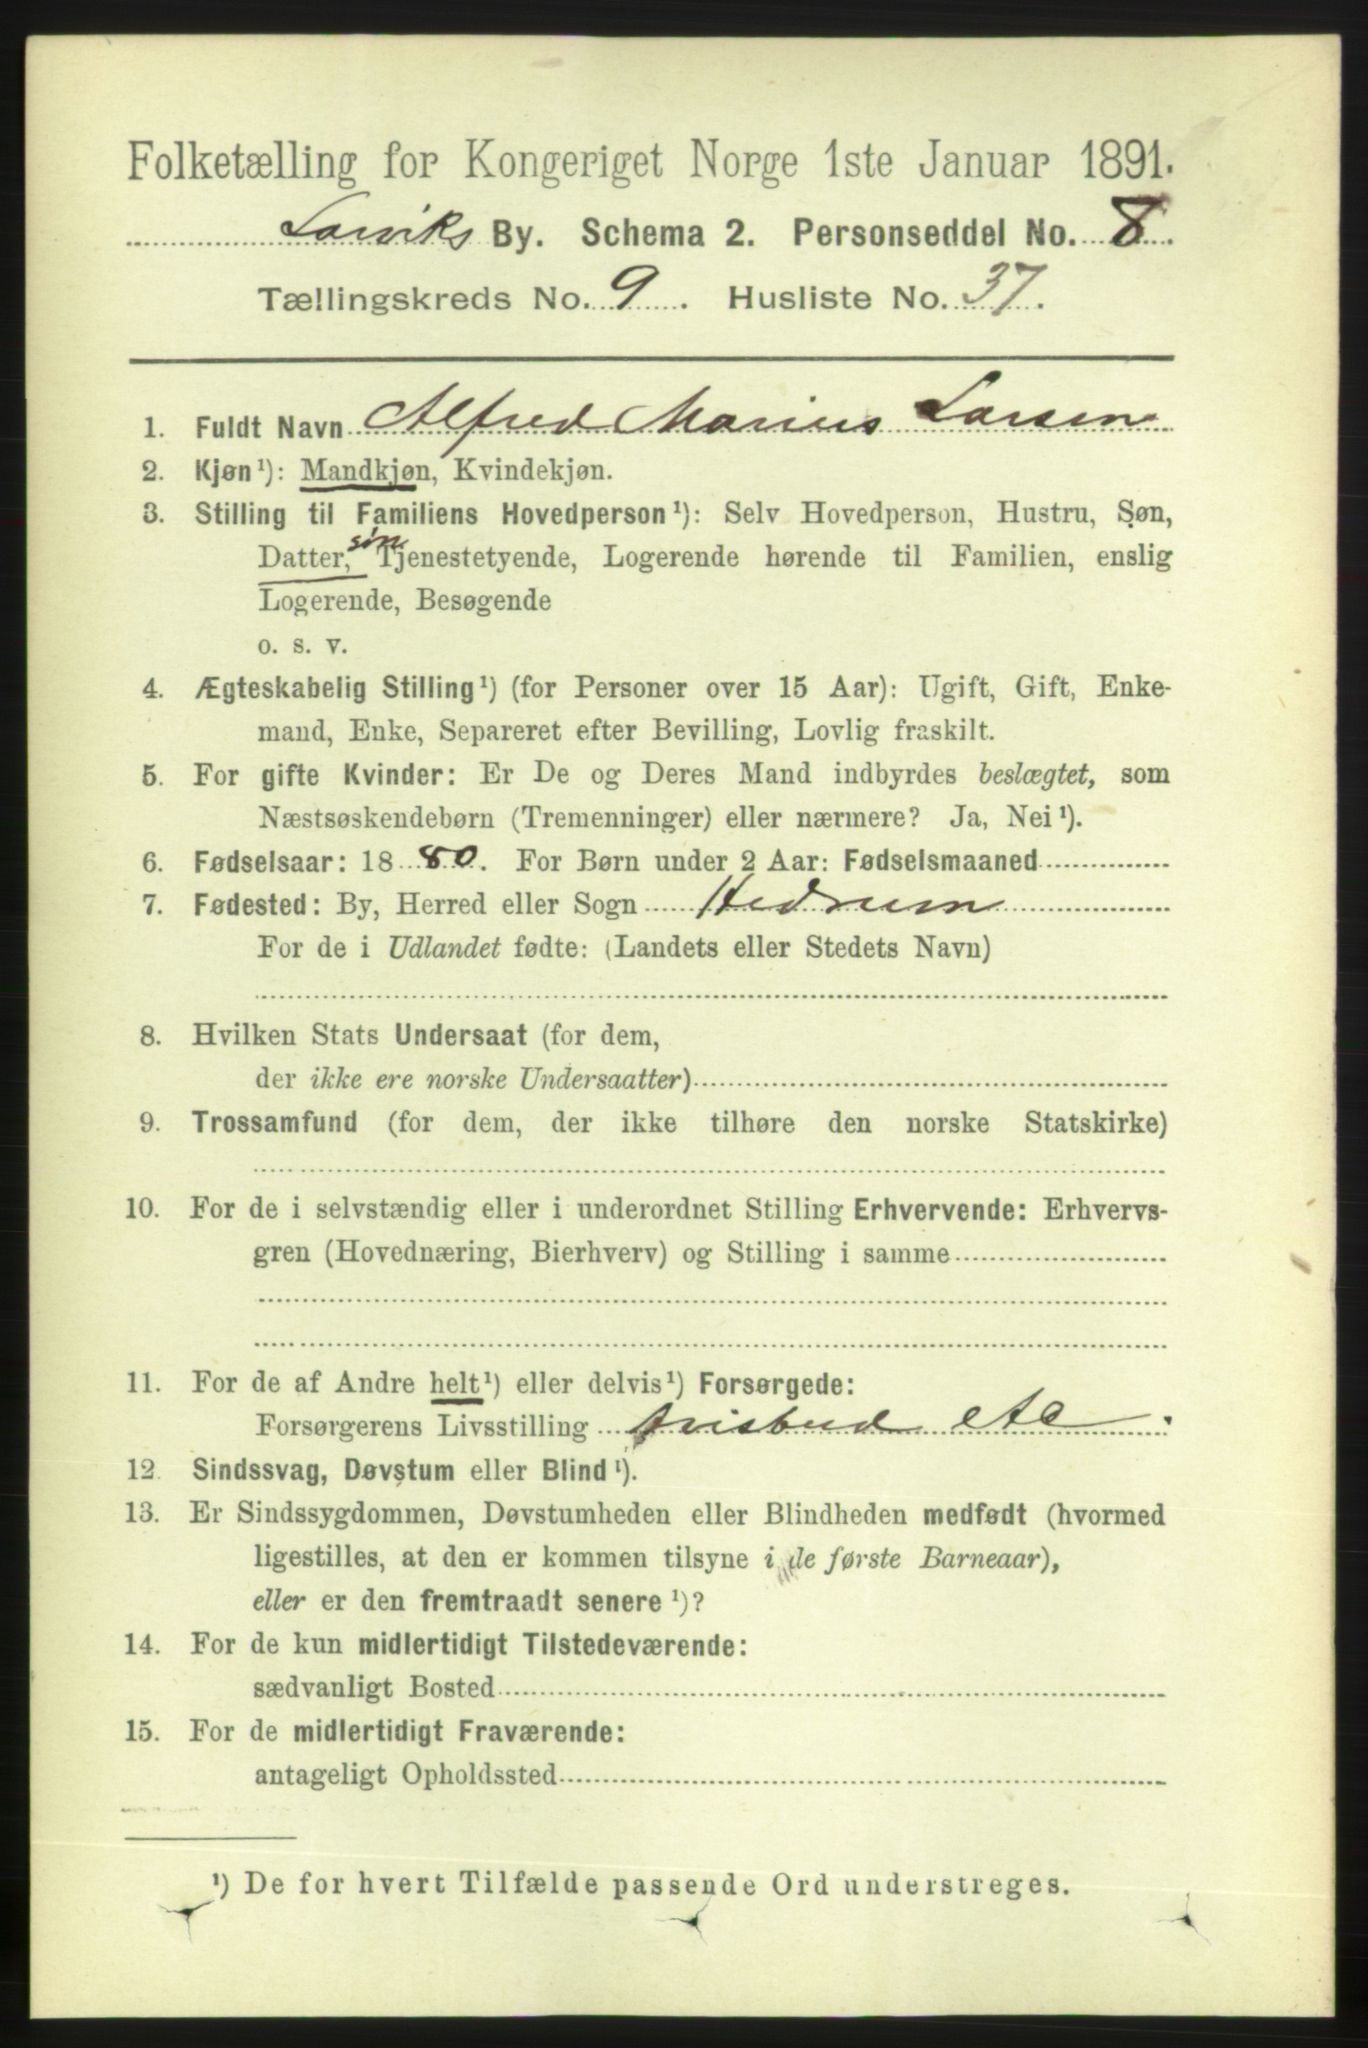 Folketælling for Kongeriget Norge 1ste Januar 1891.
Larviks By. Schema 2. Personseddel No. 8.
Tællingskreds No. 9. Husliste No. 37.
1. Fuldt Navn Alfred Marius Larsen
2. Kjøn¹): Mandkjøn, Kvindekjøn.
3. Stilling til Familiens Hovedperson¹): Selv Hovedperson, Hustru, Søn,
søn
Datter, Tjenestetyende, Logerende hørende til Familien, enslig
Logerende, Besøgende
o. s. v.
4. Ægteskabelig Stilling¹) (for Personer over 15 Aar): Ugift, Gift, Enke-
mand, Enke, Separeret efter Bevilling, Lovlig fraskilt.
5. For gifte Kvinder: Er De og Deres Mand indbyrdes beslægtet, som
Næstsøskendebørn (Tremenninger) eller nærmere? Ja, Nei¹).
6. Fødselsaar: 1880. For Børn under 2 Aar: Fødselsmaaned
7. Fødested: By, Herred eller Sogn Hedrum
For de i Udlandet fødte: (Landets eller Stedets Navn)
8. Hvilken Stats Undersaat (for dem,
der ikke ere norske Undersaatter)
9. Trossamfund (for dem, der ikke tilhøre den norske Statskirke)
10. For de i selvstændig eller i underordnet Stilling Erhvervende: Erhvervs-
gren (Hovednæring, Bierhverv) og Stilling i samme
11. For de af Andre helt¹) eller delvis¹) Forsørgede:
Forsørgerens Livsstilling Avisbud
12. Sindssvag, Døvstum eller Blind¹).
13. Er Sindssygdommen, Døvstumheden eller Blindheden medfødt (hvormed
ligestilles, at den er kommen tilsyne i de første Barneaar),
eller er den fremtraadt senere¹)?
14. For de kun midlertidigt Tilstedeværende:
sædvanligt Bosted
15. For de midlertidigt Fraværende:
antageligt Opholdssted
¹) De for hvert Tilfælde passende Ord understreges.